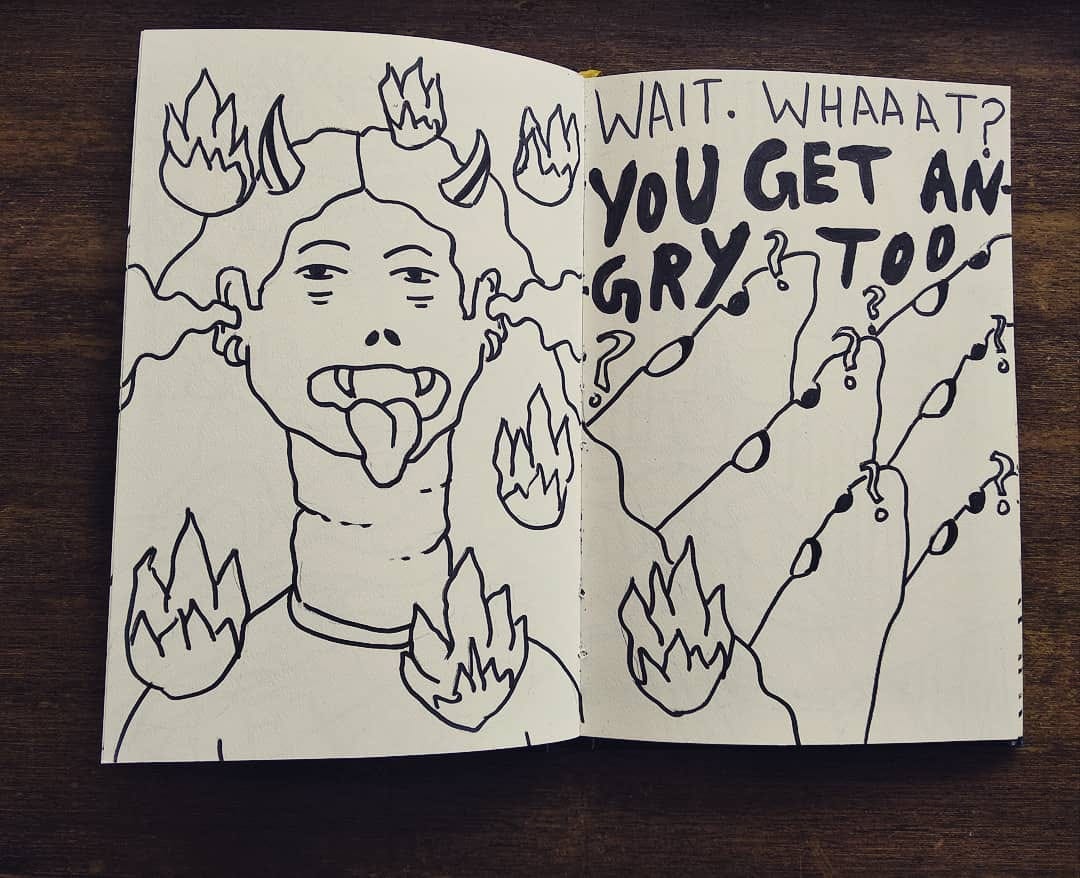 WAIT. WHAAAT?
YOU GET AN-
GRY TOO
?
?
?
?
?
?
?